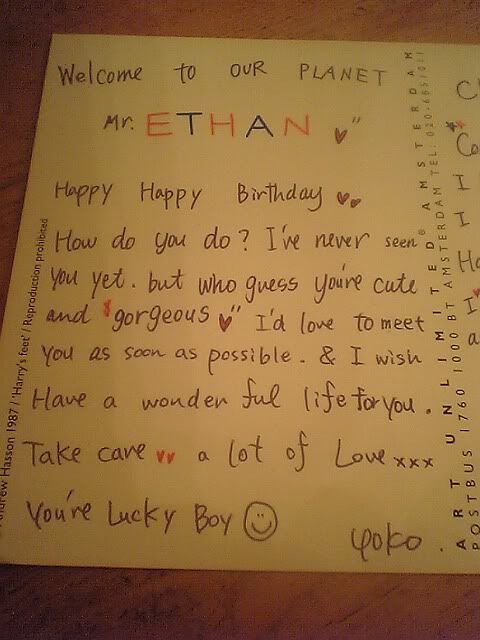 Welcome to OUR PLANET
Mr. ETHAN
Happy Happy Birthday
How do you do? I've never seen
you yet. but who guess you're cute
and "gorgeous" I'd love to meet
you as soon as possible. & I wish
Have a wonder ful life for you.
Take care a lot of Love xxx
You're Lucky Boy
yoko.
Andrew Hasson 1987 / 'Harry's feet' / Reproduction prohibited
ART UNLIMITED® AMSTERDAM
POSTBUS 1760 1000 BT AMSTERDAM TEL: 020-
Co
I
I
Ha
I
a